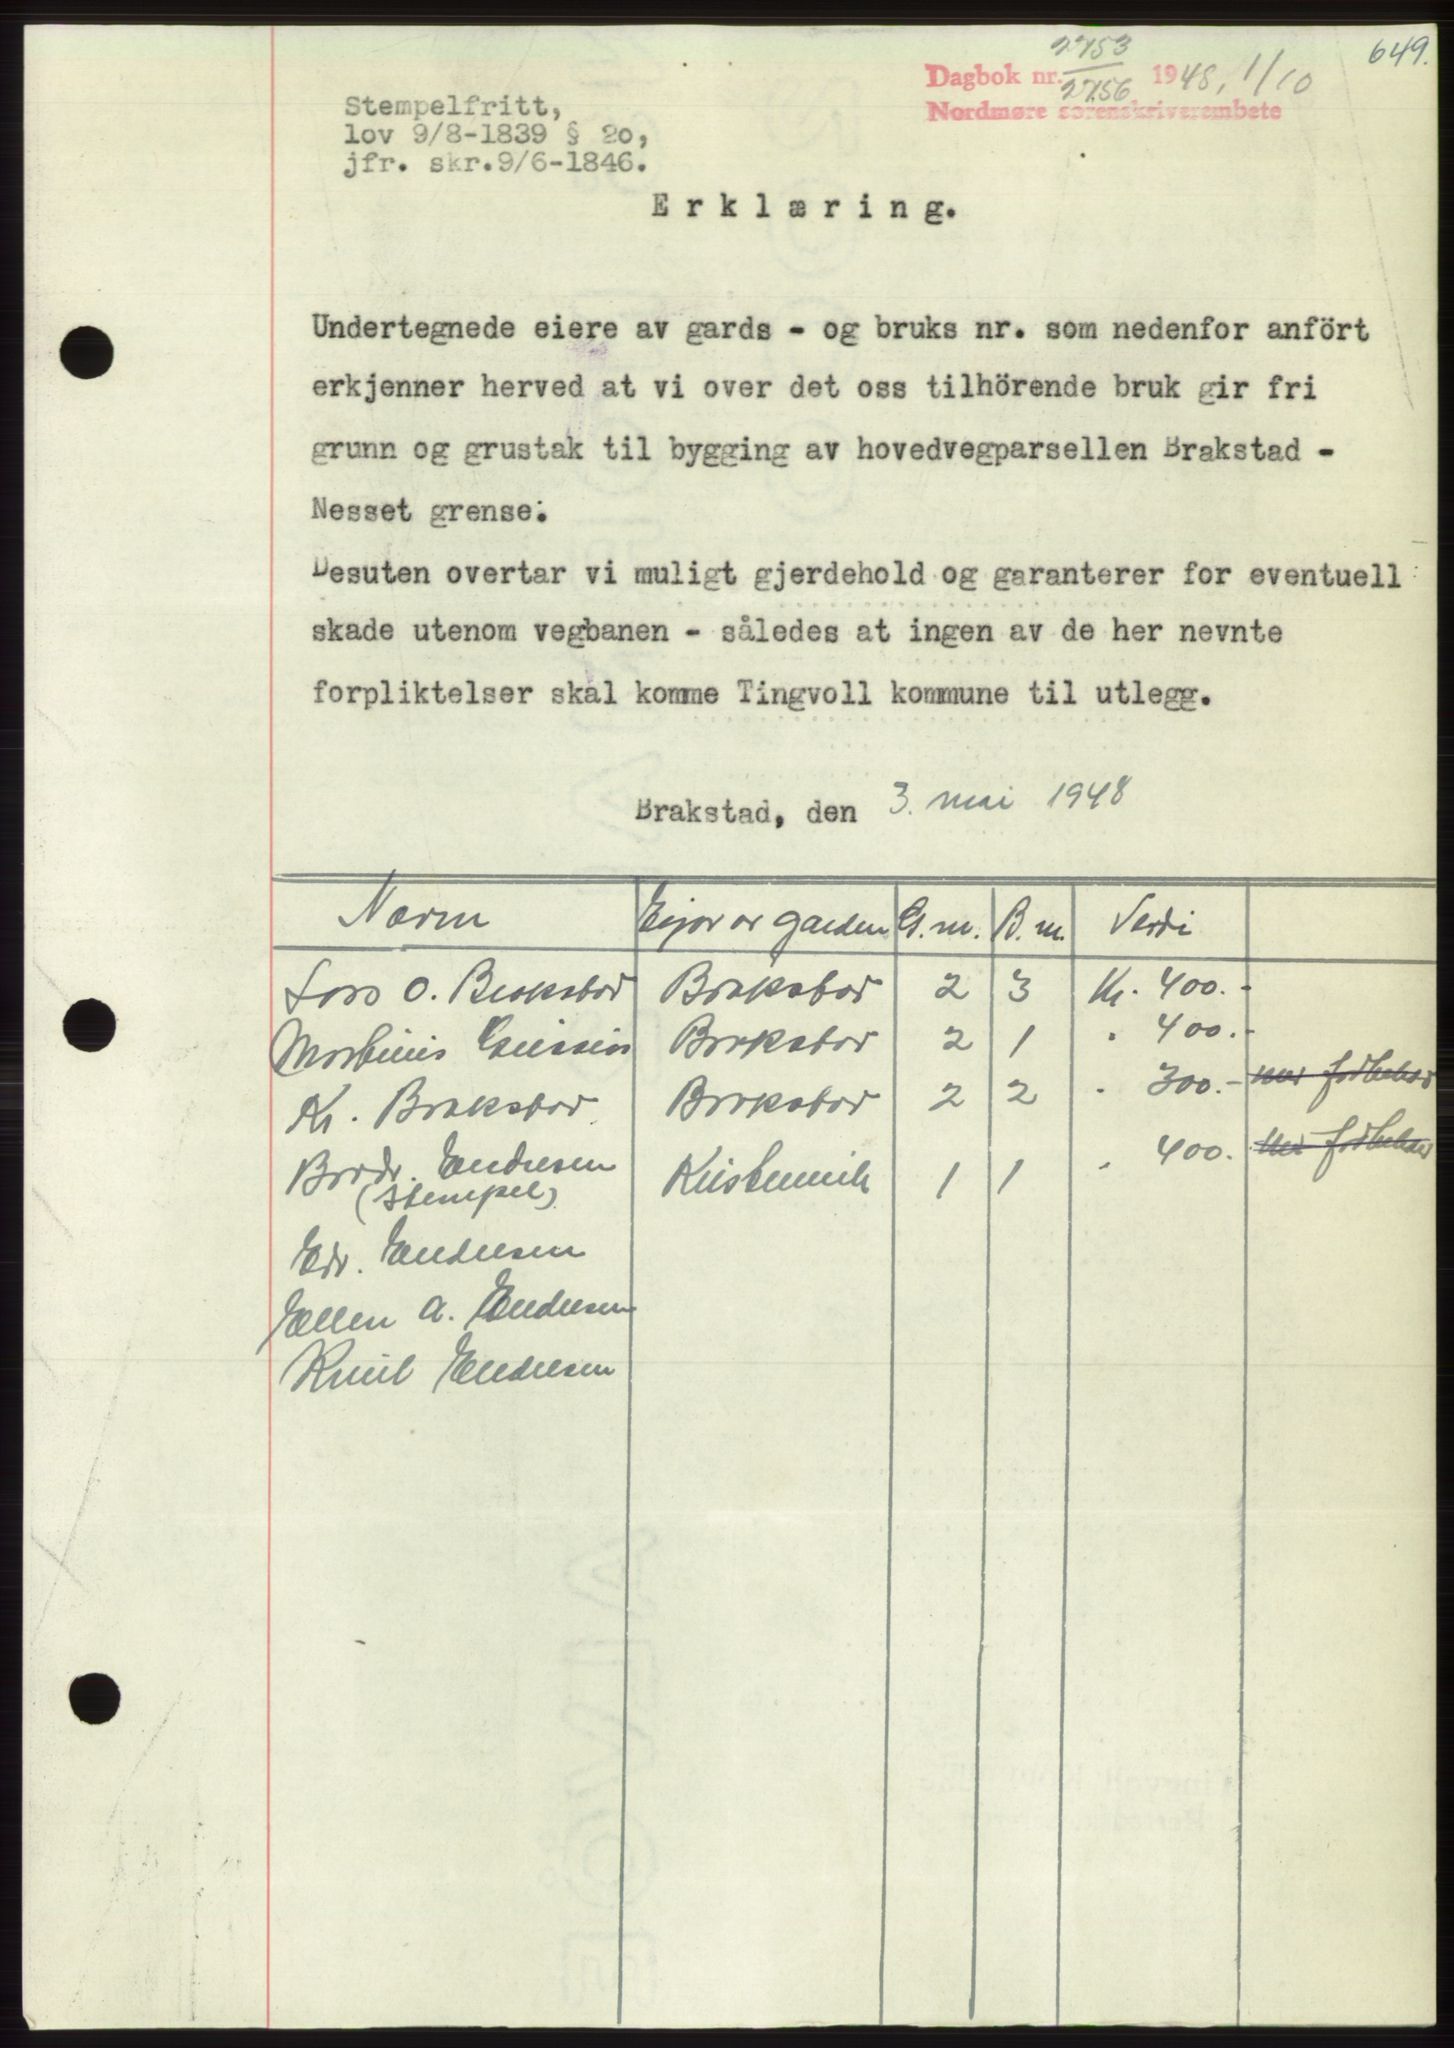 649.
2753
Dagbok nr. 1948, 1/10
2756
Nordmøre sorenskriverembete
Stempelfritt,
lov 9/8-1839 § 20,
jfr. skr.9/6-1846.
Erklæring.
Undertegnede eiere av gards - og bruks nr. som nedenfor anfört
erkjenner herved at vi over det oss tilhörende bruk gir fri
grunn og grustak til bygging av hovedvegparsellen Brakstad -
Nesset grense.
Desuten overtar vi muligt gjerdehold og garanterer for eventuell
skade utenom vegbanen - således at ingen av de her nevnte
forpliktelser skal komme Tingvoll kommune til utlegg.
Brakstad, den 3. mai 1948
Navn Eijar av garden G.nr. B.nr. Verdi
Lars O. Brakstad Brakstad 2 3 Kr. 400.-
Brakstad 2 1 " 400.-
Kr. Brakstad Brakstad 2 2 " 300.- med forbehold
Brdr. Endresen 1 1 " 400. med forbehold
(Stempel)
Edv. Endresen
Ellen A. Endresen
Knut Endresen